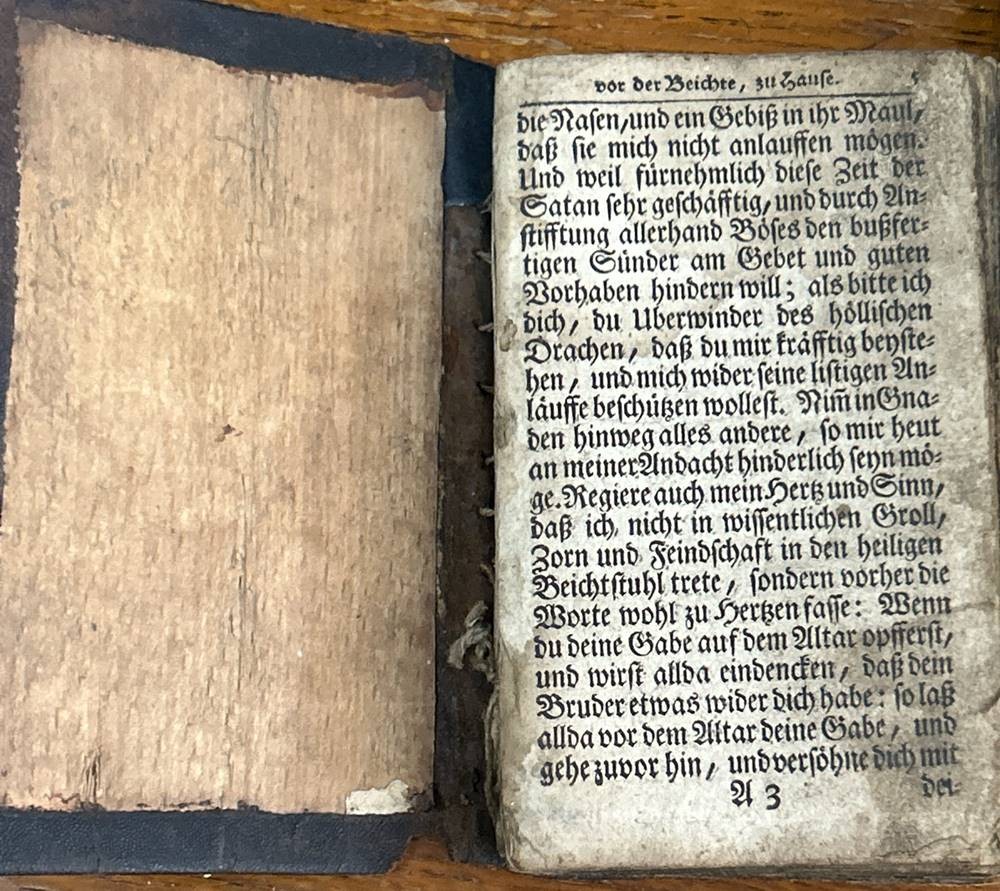 vor der Beichte, zu Hause. 5
die Nasen/und ein Gebiß in ihr Maul/
daß sie mich nicht anlauffen mögen.
Und weil fürnehmlich diese Zeit der
Satan sehr geschäfftig/ und durch An-
stifftung allerhand Böses den bußfer-
tigen Sünder am Gebet und guten
Vorhaben hindern will; als bitte ich
dich/ du Uberwinder des höllischen
Drachen/ daß du mir kräfftig beyste-
hen/ und mich wider seine listigen An-
läuffe beschützen wollest. Nim̃ in Gna-
den hinweg alles andere/ so mir heut
an meiner Andacht hinderlich seyn mö-
ge. Regiere auch mein Hertz und Sinn/
daß ich, nicht in wissentlichen Groll/
Zorn und Feindschaft in den heiligen
Beichtstuhl trete/ sondern vorher die
Worte wohl zu Hertzen fasse: Wenn
du deine Gabe auf dem Altar opfferst/
und wirst allda eindencken/ daß dein
Bruder etwas wider dich habe: so laß
allda vor dem Altar deine Gabe/ und
gehe zuvor hin/ und versöhne dich mit
A 3 dei-